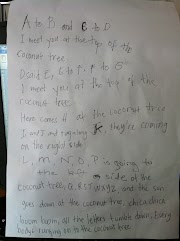 A to B and C to D
I meet you at the top of the
coconut tree
D to E, E to F, F to G
I meet you at the top of the
coconut tree
Here comes H at the coconut tree
I and J and tagalong K they're coming
on the
L, M, N, O, P is going to
the side of the
coconut tree, Q, R, S, T, U, V, W, X, Y, Z, and the sun
goes down at the coconut tree
boom boom, all the letters tumble down, Every
body running on to the coconut tree